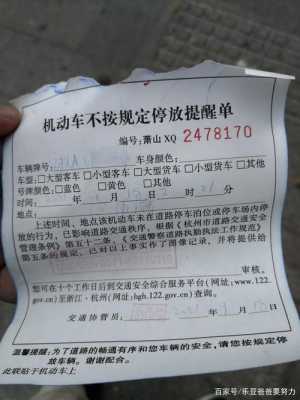 机动车不按规定停放提醒单
编号:萧山 XQ 2478170
车辆牌号: 车身颜色:
车型:□大型客车 □小型客车 □大型货车 □小型货车 □其他
号牌颜色:□蓝色 □黄色 □其他
时间: 时 分
地点:
上述时间、地点该机动车未在道路停车泊位或停车场内停
放的行为,已影响道路交通秩序,根据《杭州市道路交通安全
管理条例》第五十二条、《交通警察道路执勤执法工作规范》
第五条的规定,已对以上事实作了图像记录,并将提供给
审核。
您可在十个工作日后到交通安全综合服务平台(网址:www.122.
gov.cn至浙江·杭州(网址)hgh.122.gov.cn)查询。
交通协管员:
温馨提醒:为了道路的畅通有序和您车辆的安全,请您按规定停
放车辆。谢谢配合。
此联贴于机动车上
百家号/乐亚爸爸要努力